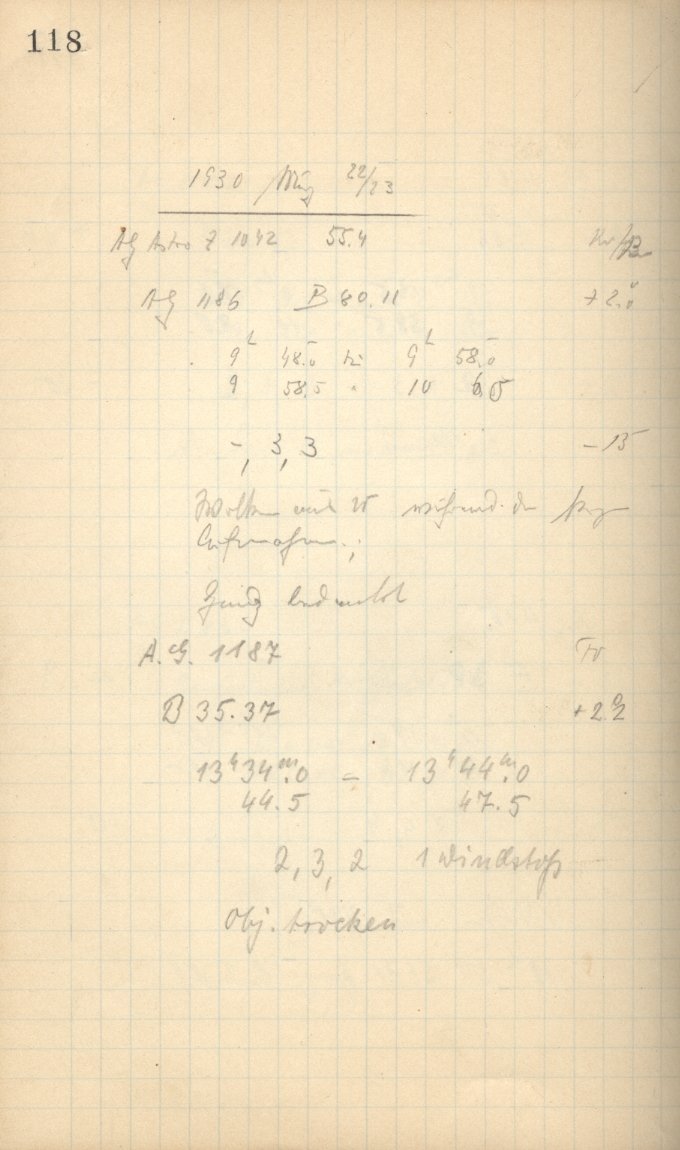 118
1930 März 22/23
AG Astro Z 1042 55.4
AG 1186 B 80.11 +2.0
9h 48.0 bis 9h 58.0
9 58.5 " 10 6.5
–, 3, 3 –15
Wolken während der
Aufnahmen;
Ganz bedeckt
A.G. 1187 Tr
B 35.37 +2.2
13h34m.0 – 13h44m.0
44.5 47.5
2, 3, 2 1 Windstoß
Obj. trocken